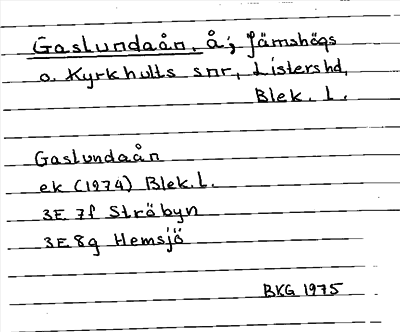 Gaslundaån, å; Jämshögs
o. Kyrkhults snr, Listers hd,
Blek. l.
Gaslundaån
ek (1974) Blek. l.
3E 7f Ströbyn
3E 8g Hemsjö
BKG 1975